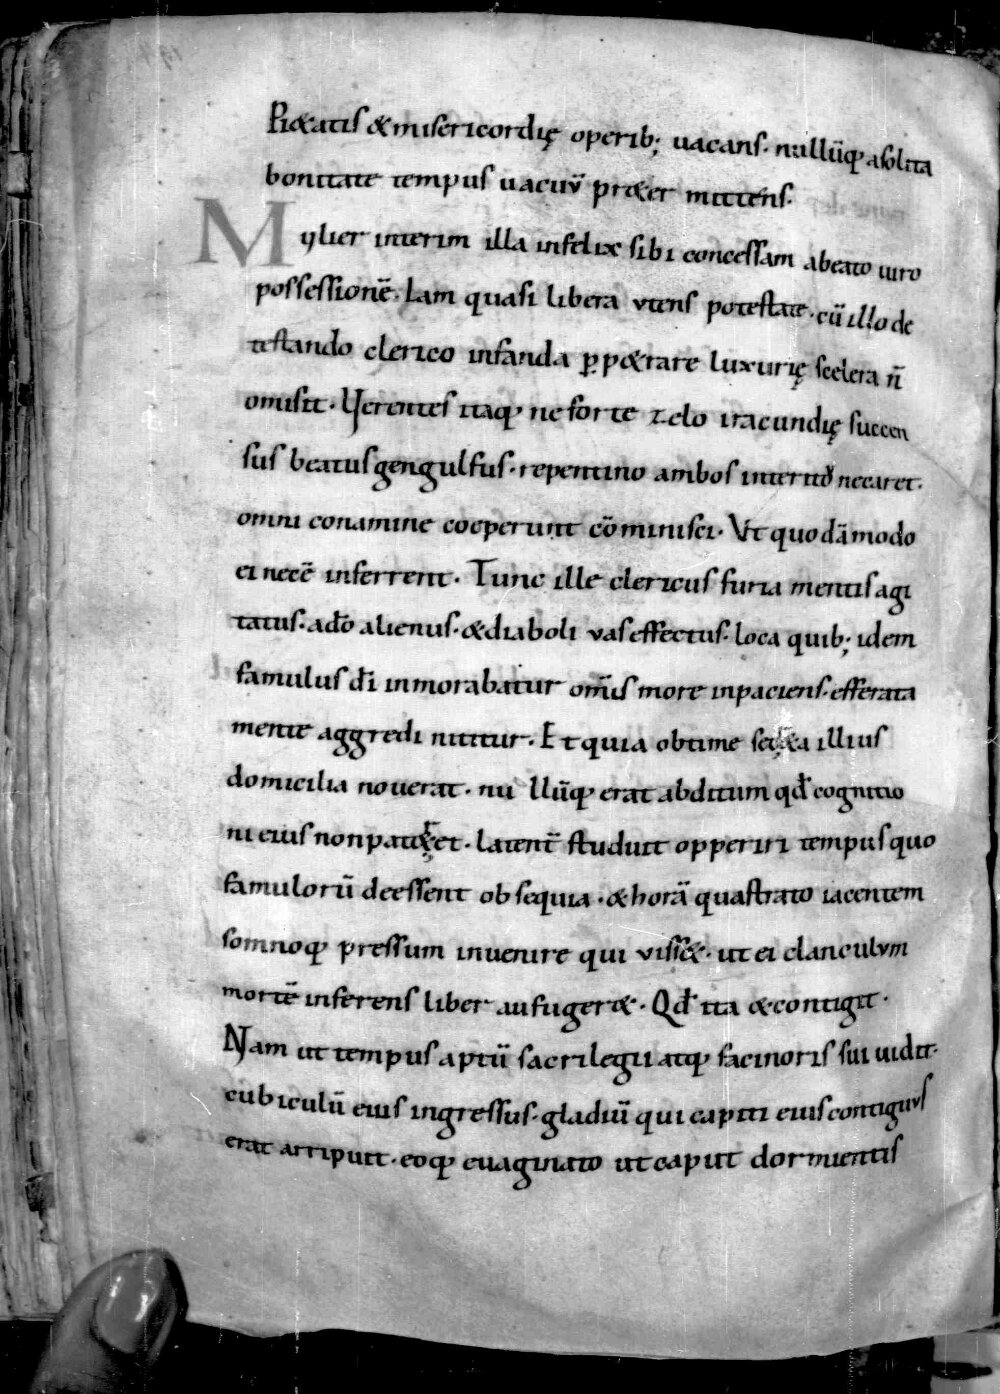 Pi&atis & misericordię operib; uacans · nullūq; asolita
bonitate tempus uacuū pr&er mittens·
Mylier interim illa infelix sibi concessam abeato uiro
possessionē · Iam quasi libera vtens potestate · cū illo de
testando clerico infanda ꝑp&rare luxurię scelera n̄
omisit · Verentes itaq; ne forte zelo iracundię succen
sus beatus gengulfus · repentino ambos interitu necaret ·
omni conamine coeperunt cōminisci · Vt quodā modo
ei necē inferrent · Tunc ille clericus furia mentis agi
tatus · ađo alienus · & diaboli vas effectus · loca quib; idem
famulus đi inmorabatur om̄is more inpaciens · efferata
mente aggredi nititur · Et quia obtime illius
domicilia nouerat · nu llūq; erat abditum qđ cognitio
ni eius non pateret · Latent̄ studuit opperiri tempus quo
famulorū deessent obsequia · & horā qua strato iacentem
somnoq; pressum inuenire qui viss& · ut ei clanculvm
mortē inferens liber aufuger& · Qđ ita & contigit ·
Nam ut tempus aptū sacrilegii atq; facinoris sui uidit·
cubiculū eius ingressus · gladiū qui capiti eius contiguus
erat arripuit · eoq; euaginato ut caput dormientis